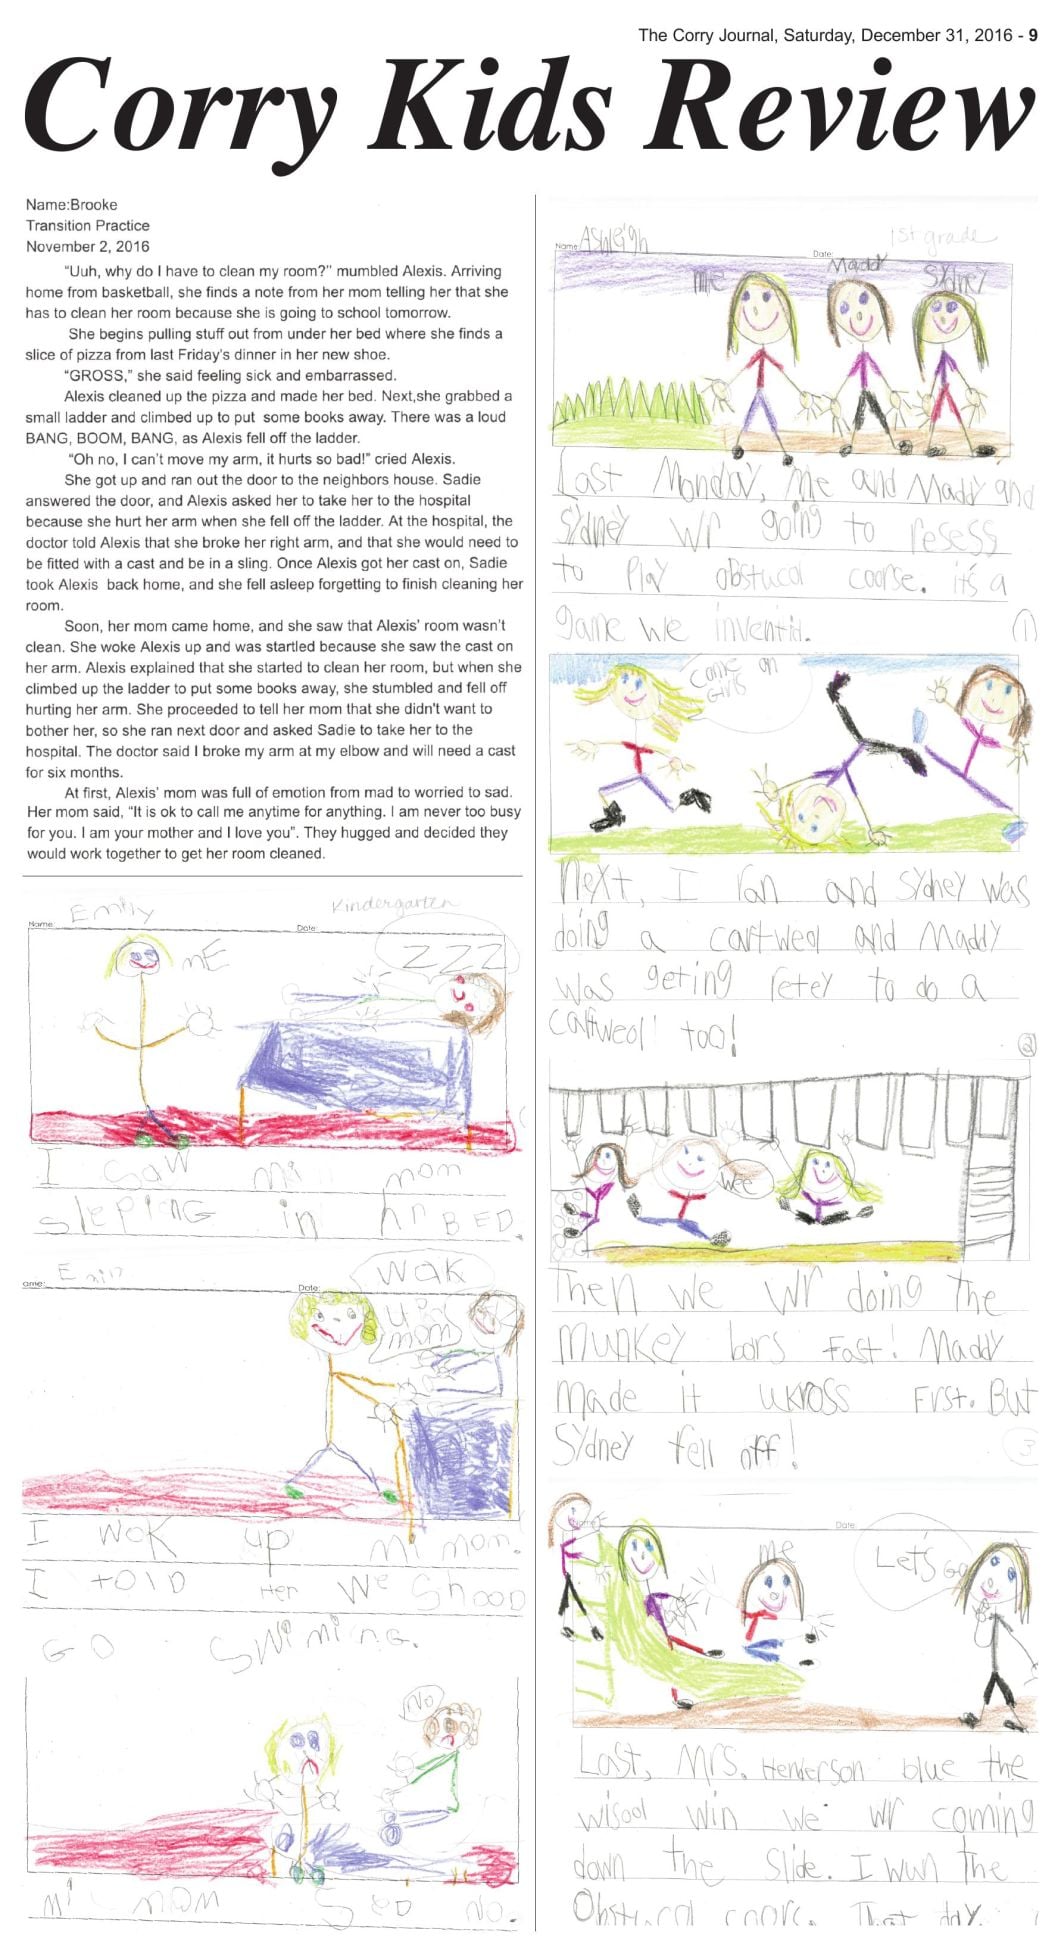 The Corry Journal, Saturday, December 31, 2016 - 9
Corry Kids Review
Name:Brooke
Transition Practice
November 2, 2016
“Uuh, why do I have to clean my room?” mumbled Alexis. Arriving
home from basketball, she finds a note from her mom telling her that she
has to clean her room because she is going to school tomorrow.
She begins pulling stuff out from under her bed where she finds a
slice of pizza from last Friday's dinner in her new shoe.
“GROSS,” she said feeling sick and embarrassed.
Alexis cleaned up the pizza and made her bed. Next,she grabbed a
small ladder and climbed up to put some books away. There was a loud
BANG, BOOM, BANG, as Alexis fell off the ladder.
“Oh no, I can't move my arm, it hurts so bad!” cried Alexis.
She got up and ran out the door to the neighbors house. Sadie
answered the door, and Alexis asked her to take her to the hospital
because she hurt her arm when she fell off the ladder. At the hospital, the
doctor told Alexis that she broke her right arm, and that she would need to
be fitted with a cast and be in a sling. Once Alexis got her cast on, Sadie
took Alexis back home, and she fell asleep forgetting to finish cleaning her
room.
Soon, her mom came home, and she saw that Alexis' room wasn't
clean. She woke Alexis up and was startled because she saw the cast on
her arm. Alexis explained that she started to clean her room, but when she
climbed up the ladder to put some books away, she stumbled and fell off
hurting her arm. She proceeded to tell her mom that she didn't want to
bother her, so she ran next door and asked Sadie to take her to the
hospital. The doctor said I broke my arm at my elbow and will need a cast
for six months.
At first, Alexis' mom was full of emotion from mad to worried to sad.
Her mom said, “It is ok to call me anytime for anything. I am never too busy
for you. I am your mother and I love you”. They hugged and decided they
would work together to get her room cleaned.
Emily Kindergarten
Name: Date:
ZZZ
mE
I saw mi mom
slepiNG in hr BED.
Name: Date:
WAK
up
mom
I wok up mi mom.
I tolD Her We Shood
GO SWimiNG.
No
mi mom SeD No.
Name: Ashleigh Date: 1st grade
me Maddy Sydney
Last Monday, me and Maddy and
Sydney wr going to resess
to Play obstucol coorse. it's a
game we inventid. 1
Come on
Girls
Next, I ran and Sydney was
doing a cartweol and Maddy
was geting retey to do a
cartweol too! 2
Wee
Then we wr doing the
munkey bars Fast! Maddy
made it ukross First. But
Sydney fell off! 3
Name: Date:
me
Let's Go
Last, Mrs. Henderson blue the
wisool win we wr coming
down the Slide. I wun the
Obstucol coorc. That day.